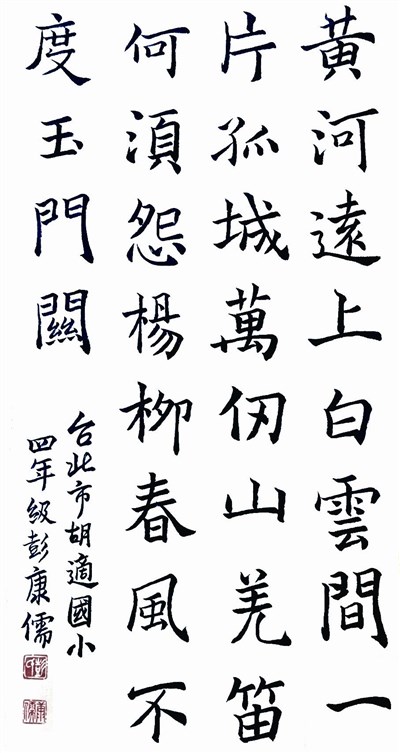 黃河遠上白雲間一
片孤城萬仞山羌笛
何須怨楊柳春風不
度玉門關
台北市胡適國小
四年級彭康儒